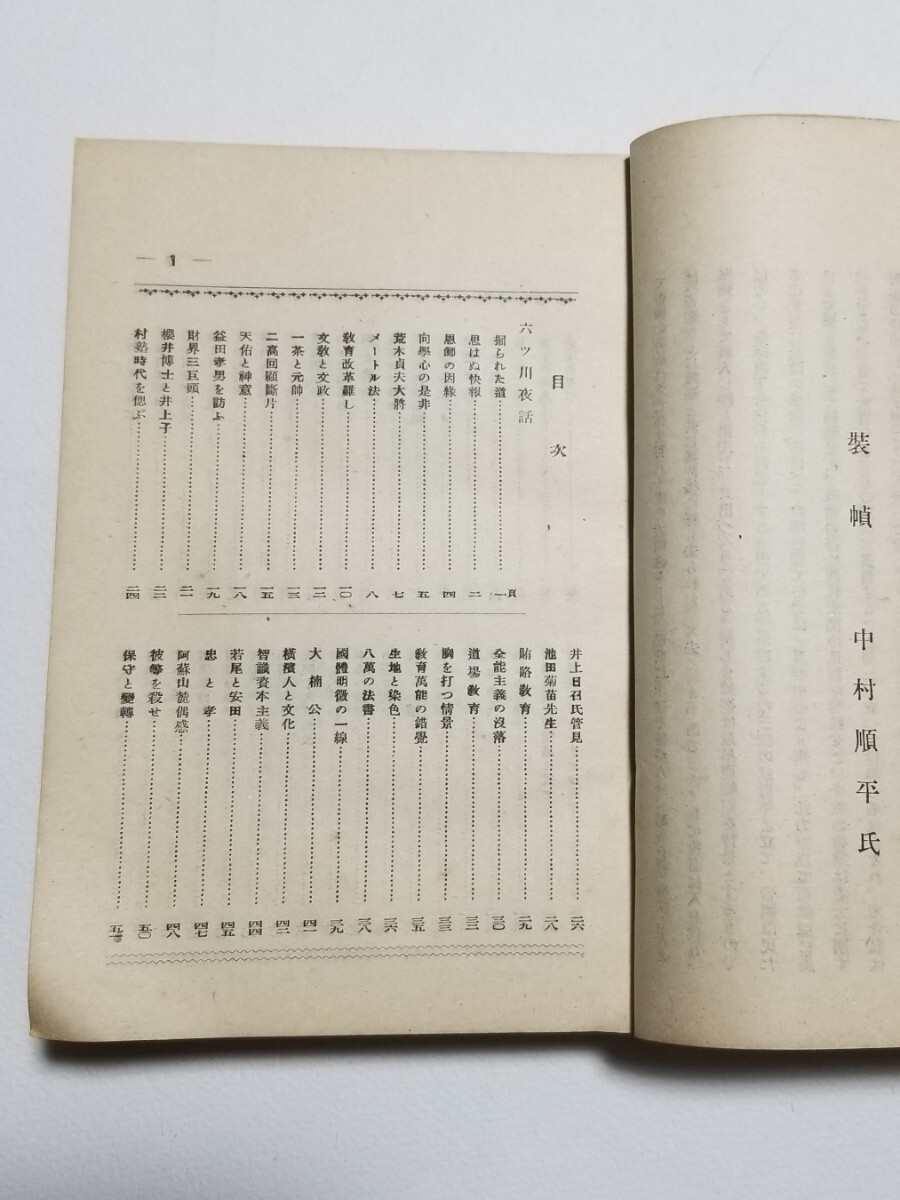 裝幀 中村順平氏
— 1 —
目次
六ツ川夜話
掘られた道……一頁
思はぬ快報……二
恩師の因緣……四
向學心の是非……五
荒木貞夫大將……七
メートル法……八
敎育改革難し……一〇
文敎と文政……一二
一茶と元帥……一三
二高回顧斷片……一五
天佑と神意……一八
益田孝男を訪ふ……一九
財界三巨頭……二一
櫻井博士と井上子……二三
村塾時代を偲ぶ……二四
井上日召氏管見……二六
池田菊苗先生……二八
賄賂敎育……二九
全能主義の沒落……三〇
道場敎育……三二
胸を打つ情景……三三
敎育萬能の錯覺……三五
生地と染色……三六
八萬の法書……三八
國體明徵の一線……三九
大楠公……四一
橫濱人と文化……四二
智識資本主義……四四
若尾と安田……四五
忠と孝……四七
阿蘇山麓偶感……四八
彼等を殺せ……五〇
保守と變轉……五一